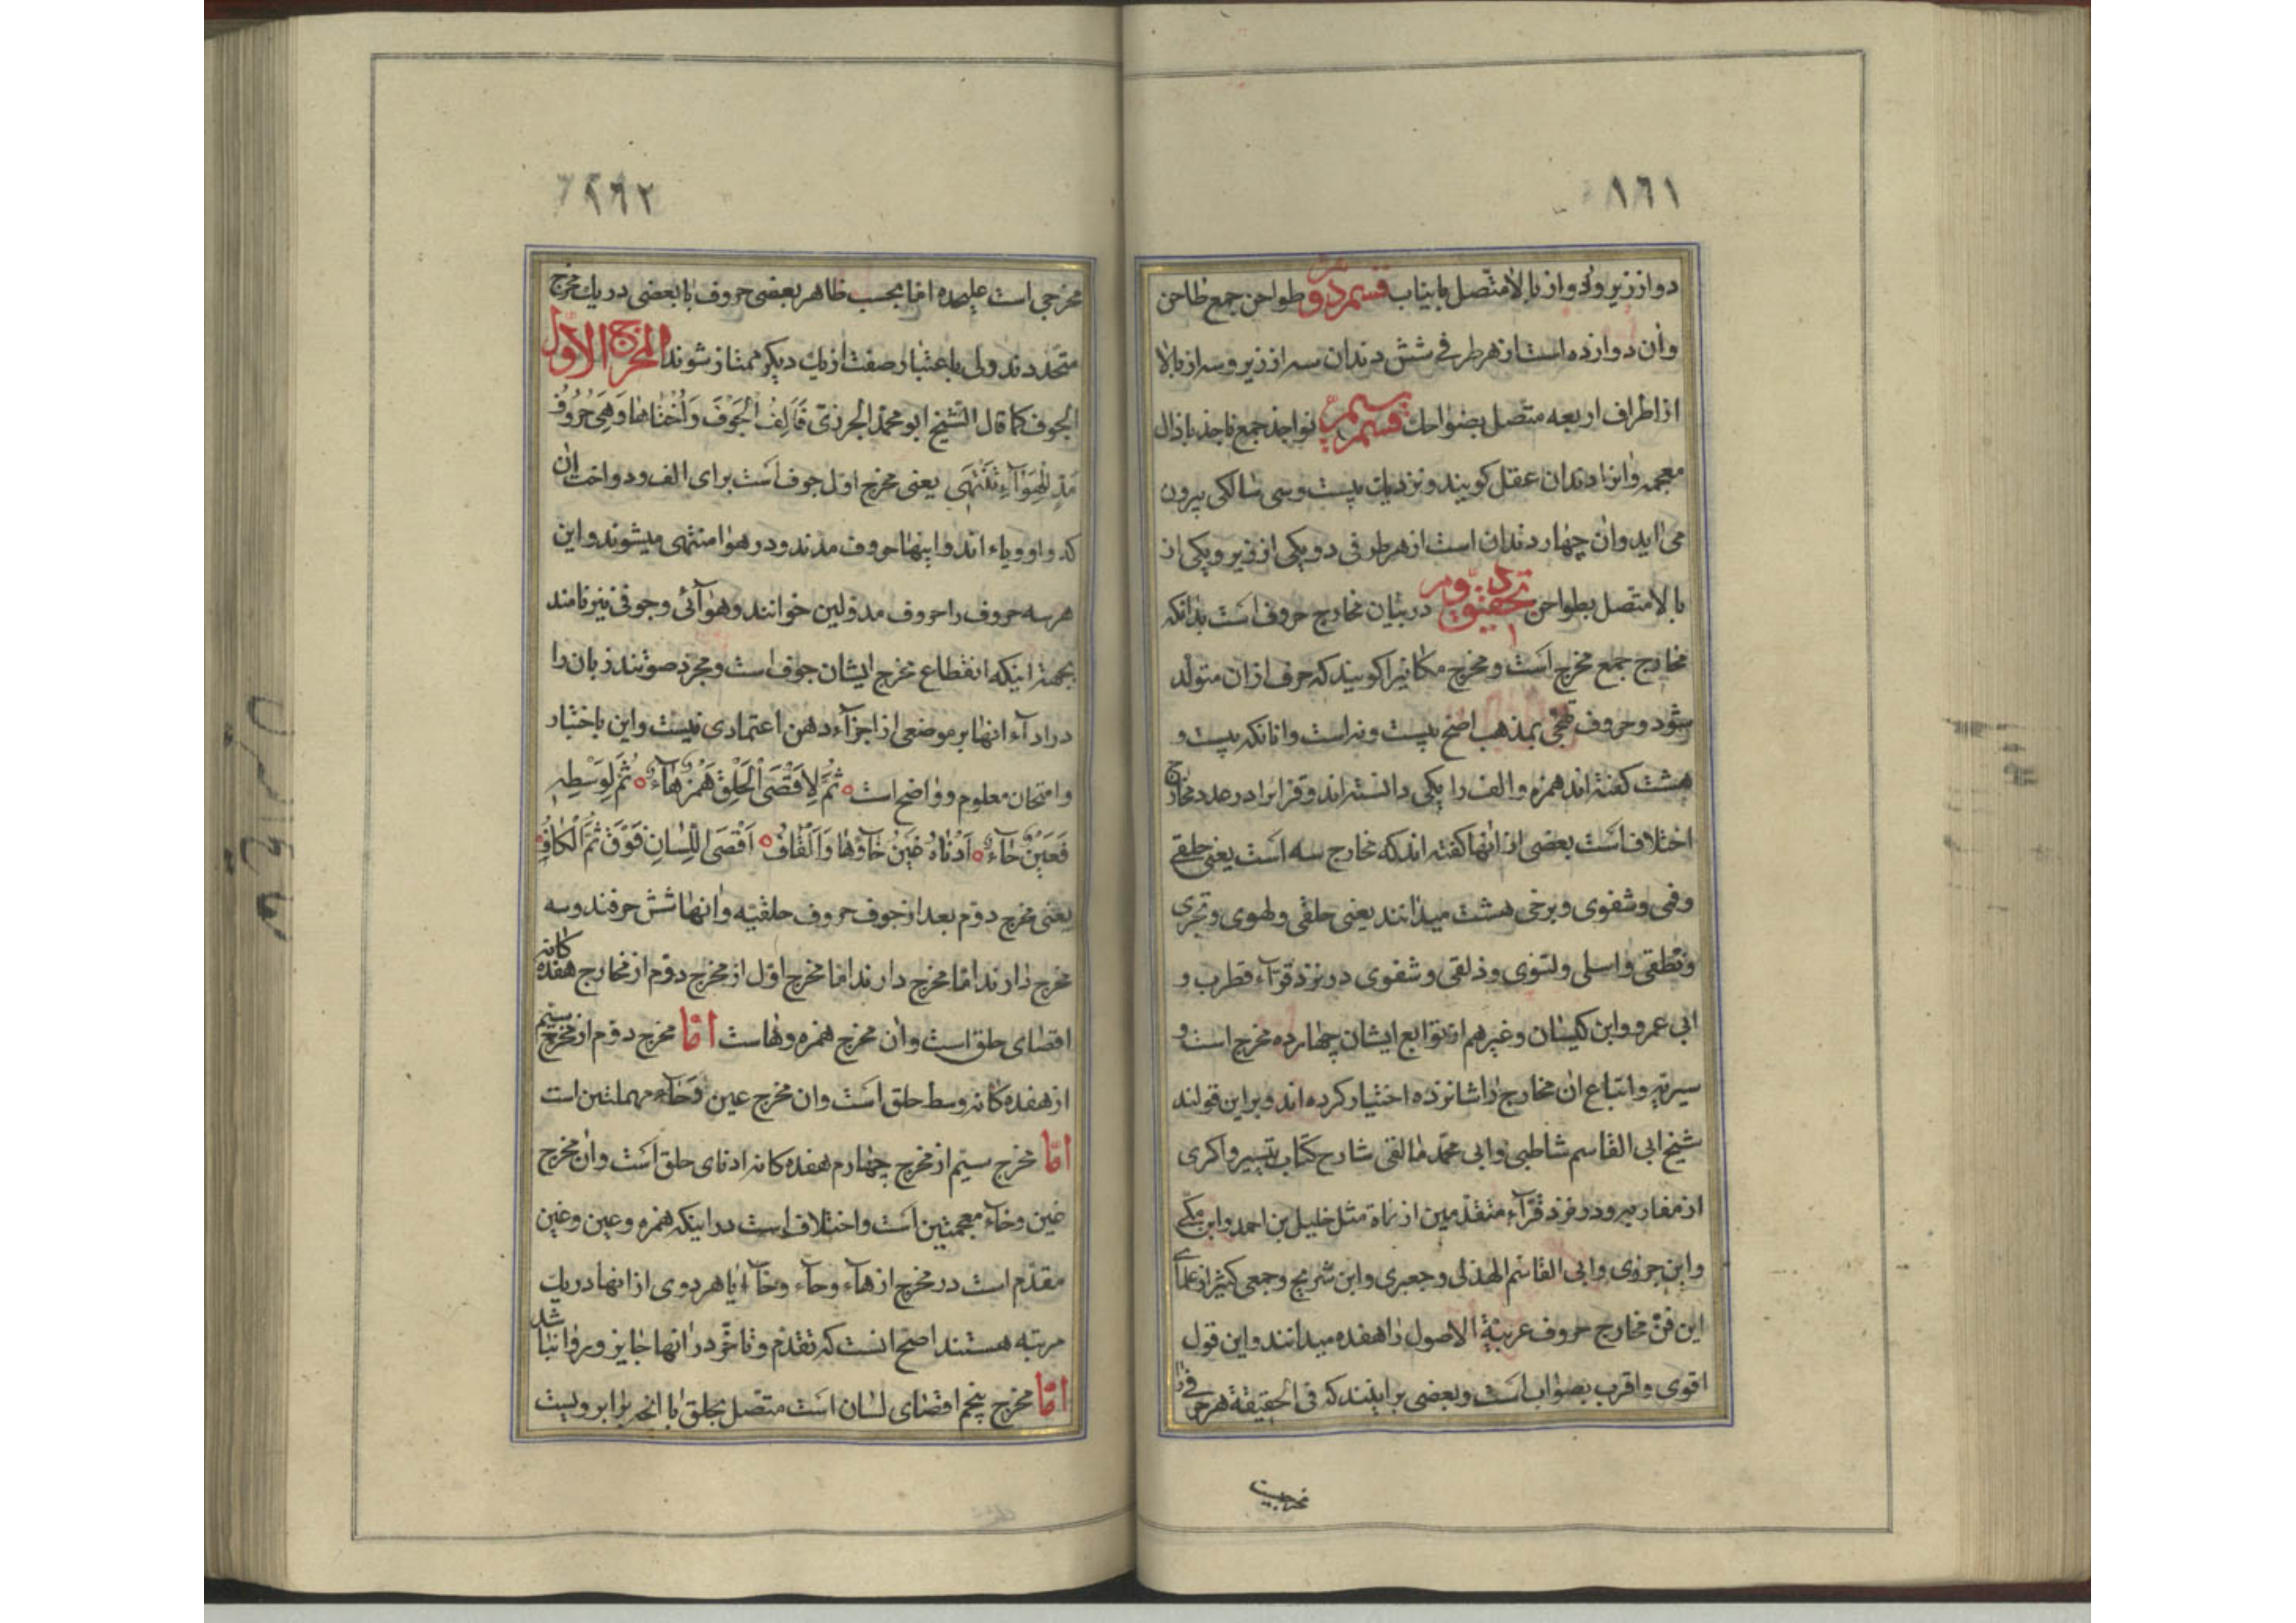 ١٦١
دو از زیر و دو از بالا متّصل بانیاب قسم دوم طواحن جمع طاحن
و آن دوازده است از هر طرفی شش دندان سه از زیر و سه از بالا
از اطراف اربعه متّصل بضواحك قسم سیم نواجذ جمع ناجذ با ذال
معجمه و انرا دندان عقل کویند و نزدیك بیست و سی سالکی بیرون
می اید و آن چهار دندان است از هر طرفی دو یکی از زیر و یکی از
بالا متّصل بطواحن تحقیق دویم در بیان مخارج حروف است بدانکه
مخارج جمع مخرج است و مخرج مکانیرا کویند که حرف از ان متولّد
شود و حروف تهجّی بمذهب اصحّ بیست و نه است و انانکه بیست و
هشت کفته اند همزه و الف را یکی دانسته اند و قرّا را در عدد مخارج
اختلاف است بعضی از انها کفته اند که مخارج سه است یعنی حلقی
و فمی و شفوی و برخی هشت میدانند یعنی حلقی و لهوی و شجری
و نطقی و اسلی و لثوی و ذلقی و شفوی در نزد قرّآء قطرب و
ابی عمرو و ابن کیسان و غیرهم از توابع ایشان چهارده مخرج است و
سیبویه و اتباع ان مخارج را شانزده اختیار کرده اند و براین قولند
شیخ ابی القاسم شاطبی و ابی محمّد مالقی شارح کتاب تیسیر و اکری
از مغاربه و در نزد قرّآء متقدّمین از نحاة مثل خلیل بن احمد و ابن مکّی
و ابن جزری و ابی القاسم الهذلی و جعبری و ابن شریح و جمعی کثیر از علمای
این فنّ مخارج حروف عربیّة الاصول را هفده میدانند و این قول
اقوی و اقرب بصواب است و بعضی براینند که فی الحقیقة هر حرفی را
مخرجیست
١٦٢
مخرجی است علیحده امّا بحسب ظاهر بعضی حروف با بعضی در یك مخرج
متّحدند ولی باعتبار صفت از یك دیکر ممتاز شوند المخرج الاوّل
الجوف کما قال الشّیخ ابو محمّد الجرزی فَاَلِفُ الْجَوْفَ وَاُخْتَاهَا وَهِیَ حُرُوفُ
مَدٍّ لِلْهَوَآءِ تَنْتَهِی یعنی مخرج اوّل جوف است برای الف و دو اخت ان
که واو و یاء اند و اینها حروف مدند و در هوا منتهی میشوند و این
هر سه حروف را حروف مد و لین خوانند و هوآئی و جوفی نیز نامند
بجهة اینکه انقطاع مخرج ایشان جوف است و مجرّد صوتند زبان را
در ادآء انها بر موضعی از اجزآء دهن اعتمادی نیست و این باختبار
و امتحان معلوم و واضح است ثُمَّ لِاَقْصَی الْحَلْقِ هَمْزٌ هَآءٌ ثُمَّ لِوَسْطِهِ
فَعَیْنٌ حَآءٌ اَدْنَاهُ غَیْنٌ خَآؤُهَا وَالْقَافُ اَقْصَی اللِّسَانِ فَوْقَ ثُمَّ الْکَافُ
یعنی مخرج دوّم بعد از جوف حروف حلقیّه و انها شش حرفند و سه
مخرج دارند امّا مخرج دارند امّا مخرج اوّل از مخرج دوّم از مخارج هفده کانه
اقصای حلق است و ان مخرج همزه و هاست امّا مخرج دوّم از مخرج سیّم
از هفده کانه وسط حلق است و ان مخرج عین و حآء مهملتین است
امّا مخرج سیّم از مخرج چهارم هفده کانه ادنای حلق است و ان مخرج
غین و خآء معجمتین است و اختلاف است در اینکه همزه و عین و غین
مقدّم است در مخرج از هآء و حآء و خآء یا هر دوی از انها در یك
مرتبه هستند اصحّ انست که تقدّم و تاخّر در انها جایز و روا نباشد
امّا مخرج پنجم اقصای لسان است متّصل بحلق با انچه برابر ویست